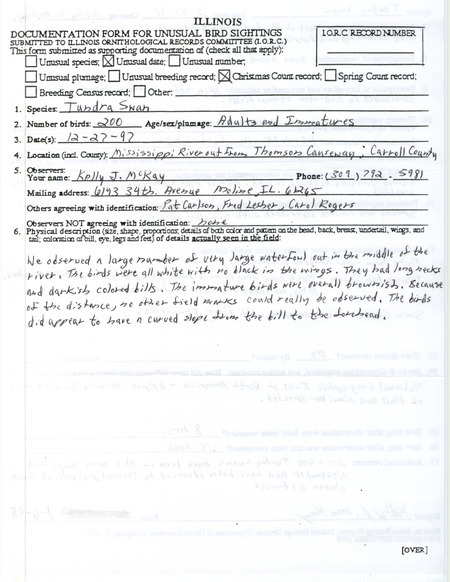 ILLINOIS
DOCUMENTATION FORM FOR UNUSUAL BIRD SIGHTINGS
SUBMITTED TO ILLINOIS ORNITHOLOGICAL RECORDS COMMITTEE (I.O.R.C.)
This form submitted as supporting documentation of (check all that apply):
I.O.R.C. RECORD NUMBER
Unusual species; Unusual date; Unusual number;
Unusual plumage; Unusual breeding record; Christmas Count record; Spring Count record;
Breeding Census record; Other:
1. Species: Tundra Swan
2. Number of birds: 200 Age/sex/plumage: Adults and Immatures
3. Date(s): 12-27-97
4. Location (incl. County): Mississippi River out from Thomson Causeway; Carroll County
5. Observers:
Your name: Kelly J. McKay Phone: (309) 792-5981
Mailing address: 6193 34th Avenue Moline, IL. 61265
Others agreeing with identification: Pat Carlson, Fred Lesher, Carol Rogers
Observers NOT agreeing with identification: none
6. Physical description (size, shape, proportions; details of both color and pattern on the head, back, breast, undertail, wings, and
tail; coloration of bill, eye, legs and feet) of details actually seen in the field:
We observed a large number of very large waterfowl out in the middle of the
river. The birds were all white with no black in the wings. They had long necks
and darkish colored bills. The immature birds were overall brownish. Because
of the distance, no other field marks could really be observed. The birds
did appear to have a curved slope from the bill to the forehead.
[OVER]